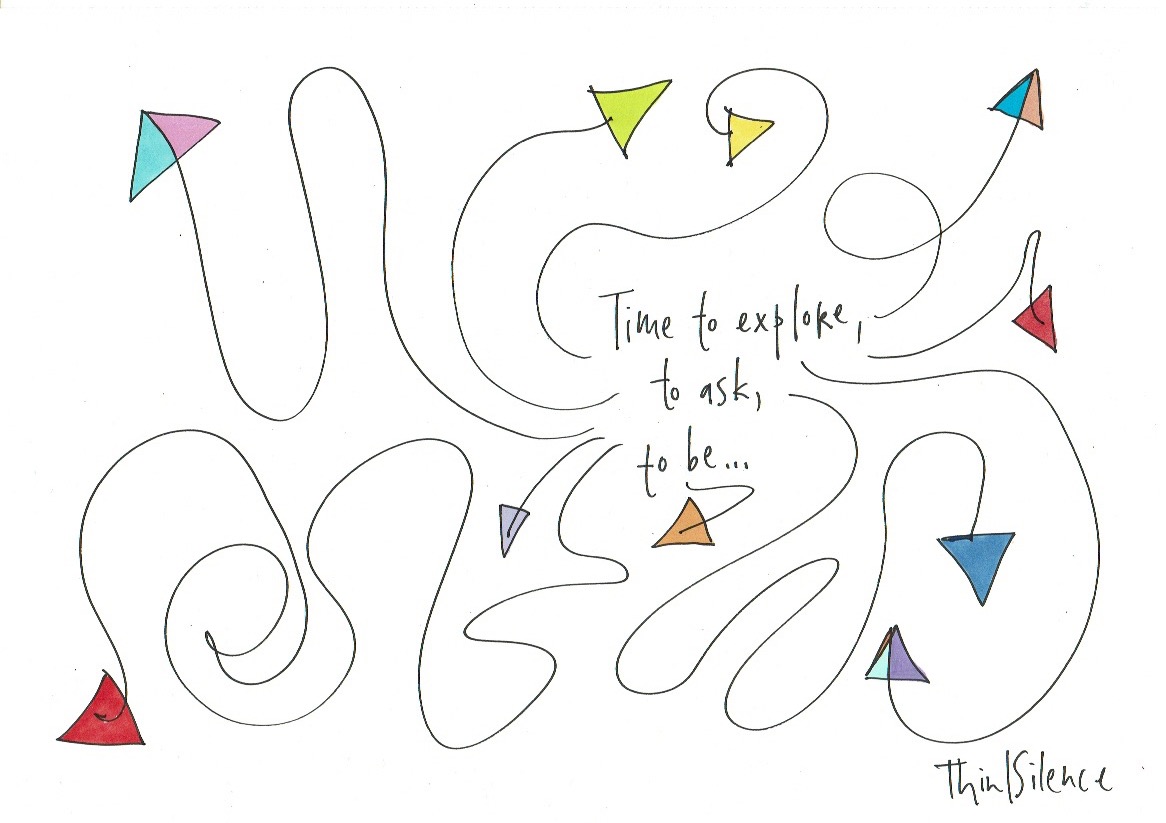 Time to explore,
to ask,
to be...
Thin|Silence